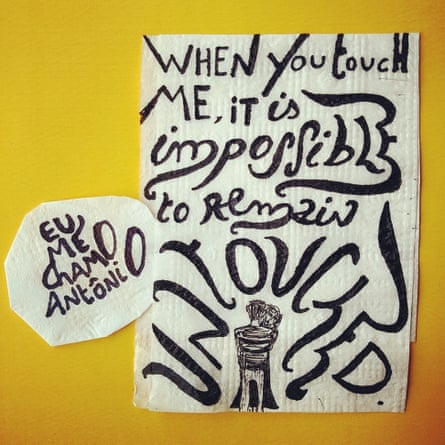 WHEN YOU touCH
ME, it is
impossible
to Remain
UNTOUCHED
EU
ME
CHAMO
ANTÔNIO